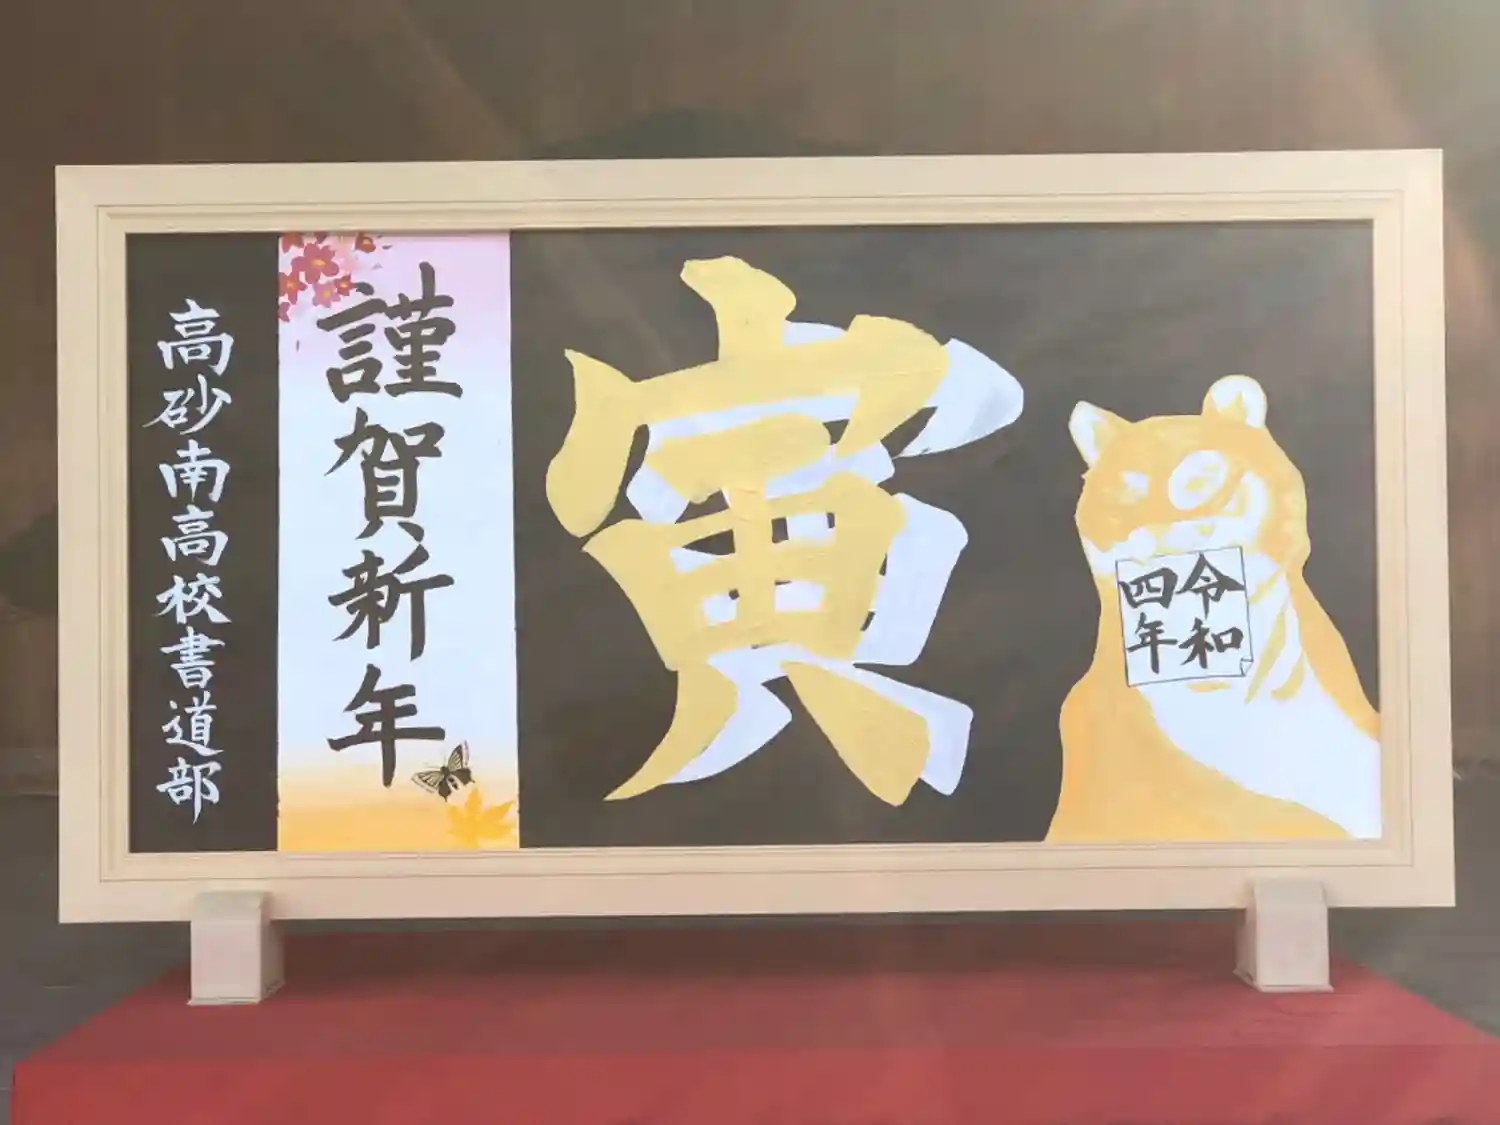 令和
四年
寅
謹賀新年
高砂南高校書道部